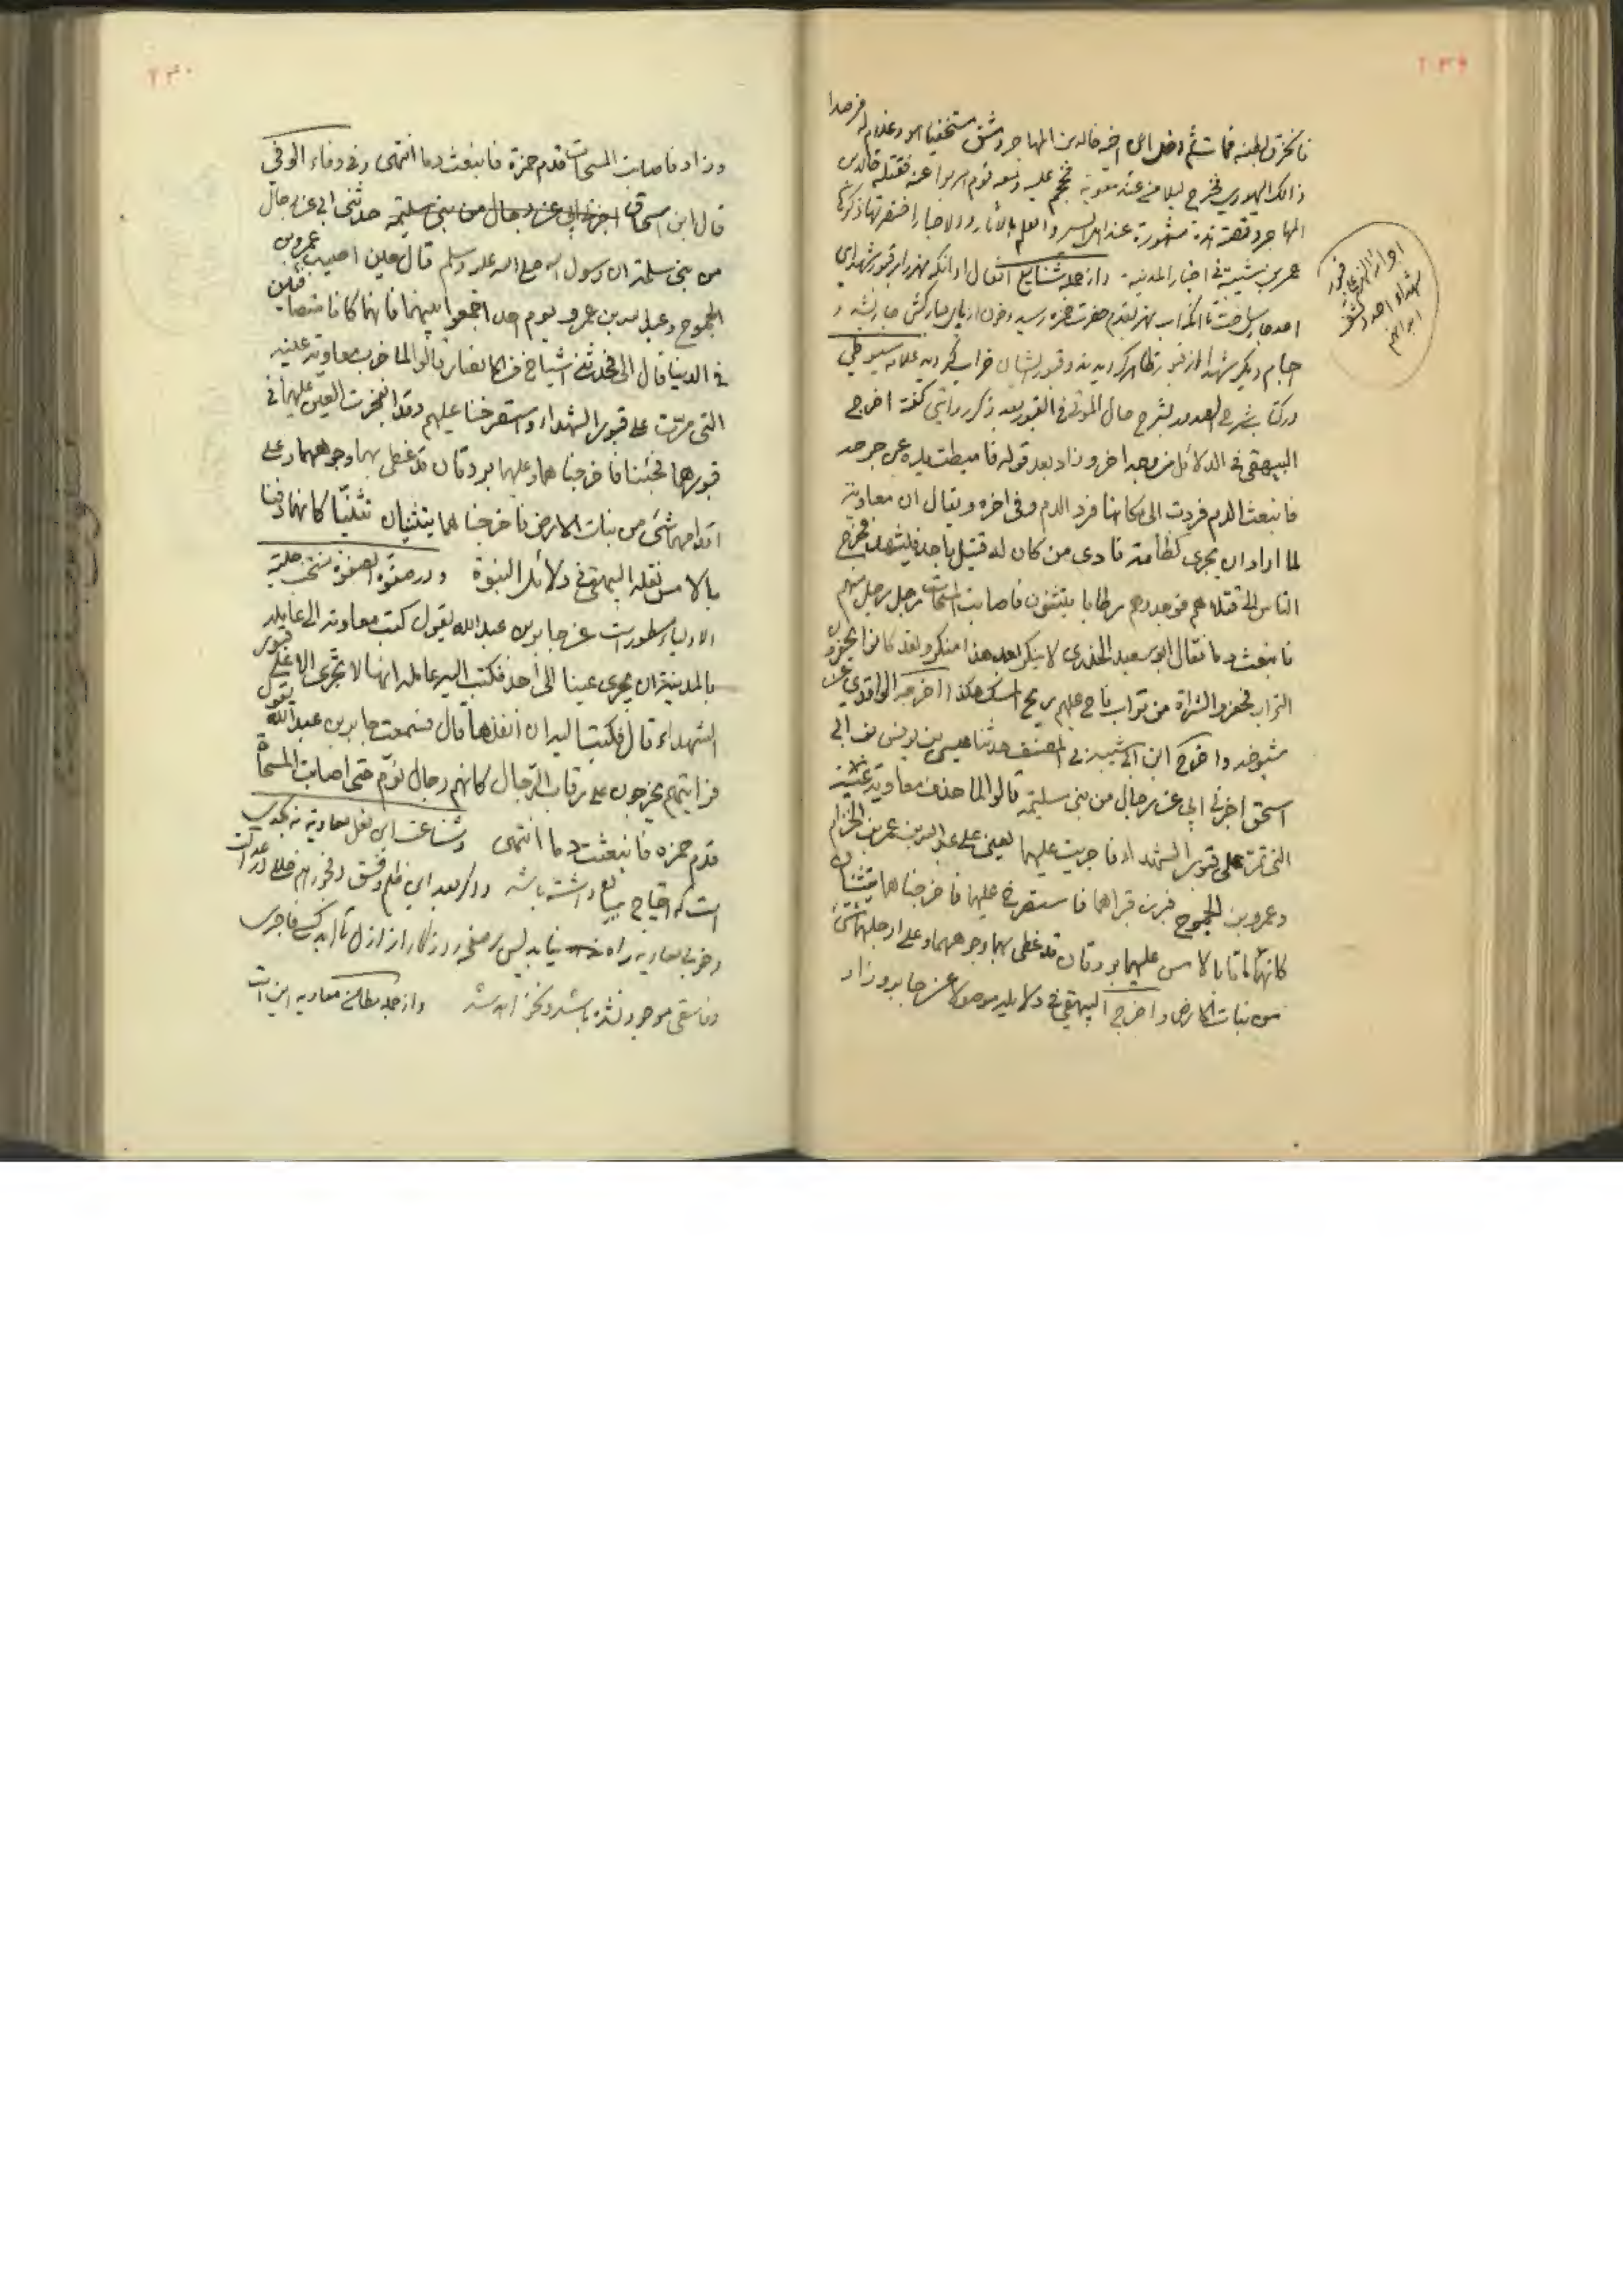 ٢٣٩
فانخرق بطنه فمات ثم دخل ابن اخيه خالد بن المهاجر دمشق مستخفيا هو وغلام له فرصدا
ذالك اليهودي فخرج ليلا من عند معوية فهجم عليه ومعه قوم هربوا عنه فقتله خالد بن
المهاجر وقصته هذه مشهورة عند اهل السير والعلم بالآثار والاخبار اختصرتها ذكرها
عمر بن شبة في اخبار المدينة وازجمله شنايع افعال او آنكه نهر را بر قبور شهداى
احد جارى ساخت تا آنكه آب نهر بقدم حضرت حمزه رسيد وخون از پاى مباركش جارى شد و
اجسام ديگر شهدا از قبور ظاهر گرديدند وقبور ايشان خراب گرديد علامه سيوطي
در كتاب شرح الصدور بشرح حال الموتى في القبور بعد ذكر روايتى گفته اخرج
البيهقي في الدلائل من وجه اخر وزاد بعد قوله فاميطت يده عن جرحه
فانبعث الدم فردت الى مكانها فرد الدم وفي اخره ويقال ان معاوية
لما اراد ان يجرى كظامة نادى من كان له قتيل باحد فليشهد فخرج
الناس الى قتلاهم فوجدوهم رطابا يتثنون فاصابت المسحات رجل رجل منهم
فانبعث دما فقال ابو سعيد الخدرى لا ينكر بعد هذا منكر ولقد كانوا يحفرون
التراب فحفروا نثرة من تراب فاح عليهم ريح المسك هكذا اخرجه الواقدي عن
شيوخه واخرج ابن ابي شيبة في المصنف حدثنا عيسى بن يونس عن ابي
اسحق اخبرني ابي عن رجال من بني سلمة قالوا لما صرف معاوية عينه
التي تمر على قبور الشهداء فاجريت عليهما يعني على عبد الله بن عمرو بن الحزام
وعمرو بن الجموح فبرز قبراهما فاستصرخ عليهما فاخرجناهما يتثنيان
كانهما ماتا بالامس عليهما بردتان قد غطى بهما وجوههما وعلى ارجلهما شئ
من نبات الارض واخرج البيهقي في دلايله موصولا عن جابر وزاد
اجراء النهر على قبور
شهداء احد وكشف
ابدانهم
٢٣٠
وزاد فاصابت المسحات قدم حمزة فانبعث دما انتهى وفى وفاء الوفى
قال ابن اسحاق اخبرني ابي عن رجال من بني سلمة حدثني ابي عن رجال
من بني سلمة ان رسول الله صلى الله عليه وسلم قال حين اصيب عمرو بن
الجموح وعبد الله بن عمرو يوم احد اجمعوا بينهما فانهما كانا متصافين
في الدنيا قال ابي فحدثني اشياخ من الانصار قالوا لما ضرب معاوية عينه
التي مرت على قبور الشهداء واستصرخنا عليهم وقد انفجرت العين عليهما في
قبورهما فجئنا فاخرجناهما وعليهما بردتان قد غطى بهما وجوههما وعلى
اقدامهما شئ من نبات الارض فاخرجناهما يتثنيان تثنيا كانهما دفنا
بالامس نقله البيهقي في دلائل النبوة ودر صفوة الصفوة منتخب حلية
الاولياء مسطور است عن جابر بن عبد الله يقول كتب معاوية الى عامله
بالمدينة ان يجرى عينا الى احد فكتب اليه عامله انها لا تجرى الا على قبور
الشهداء قال فكتب اليه ان انفذها قال فسمعت جابر بن عبد الله يقول
فرايتهم يخرجون على رقاب الرجال كانهم رجال نوم حتى اصابت المسحاة
قدم حمزه فانبعثت دما انتهى وشناعت اين فعل معاويه نه بحدى
است كه احتياج ببيان داشته باشد واگر بعد اين ظلم وفسق وفجور هم خللى در عدالت
وخوبى معاويه راه نيابد پس بر صفحه روزگار از ازل تا ابد كسى فاجرى
وفاسقى موجود نشده باشد ونخواهد شد وازجمله مطاعن معاويه اين است